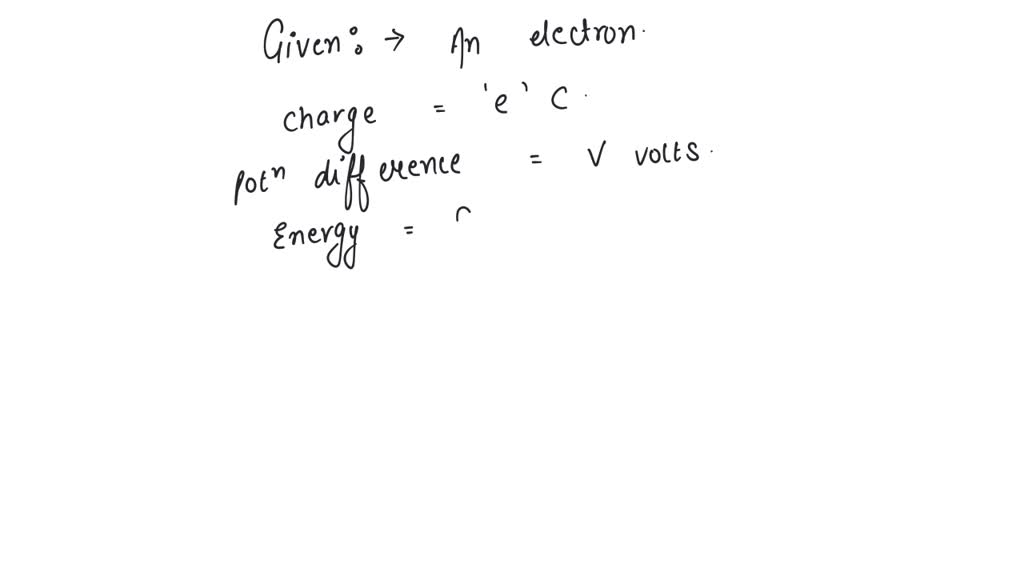 Given: → An electron.
charge = 'e' C.
potⁿ difference = V volts.
Energy =